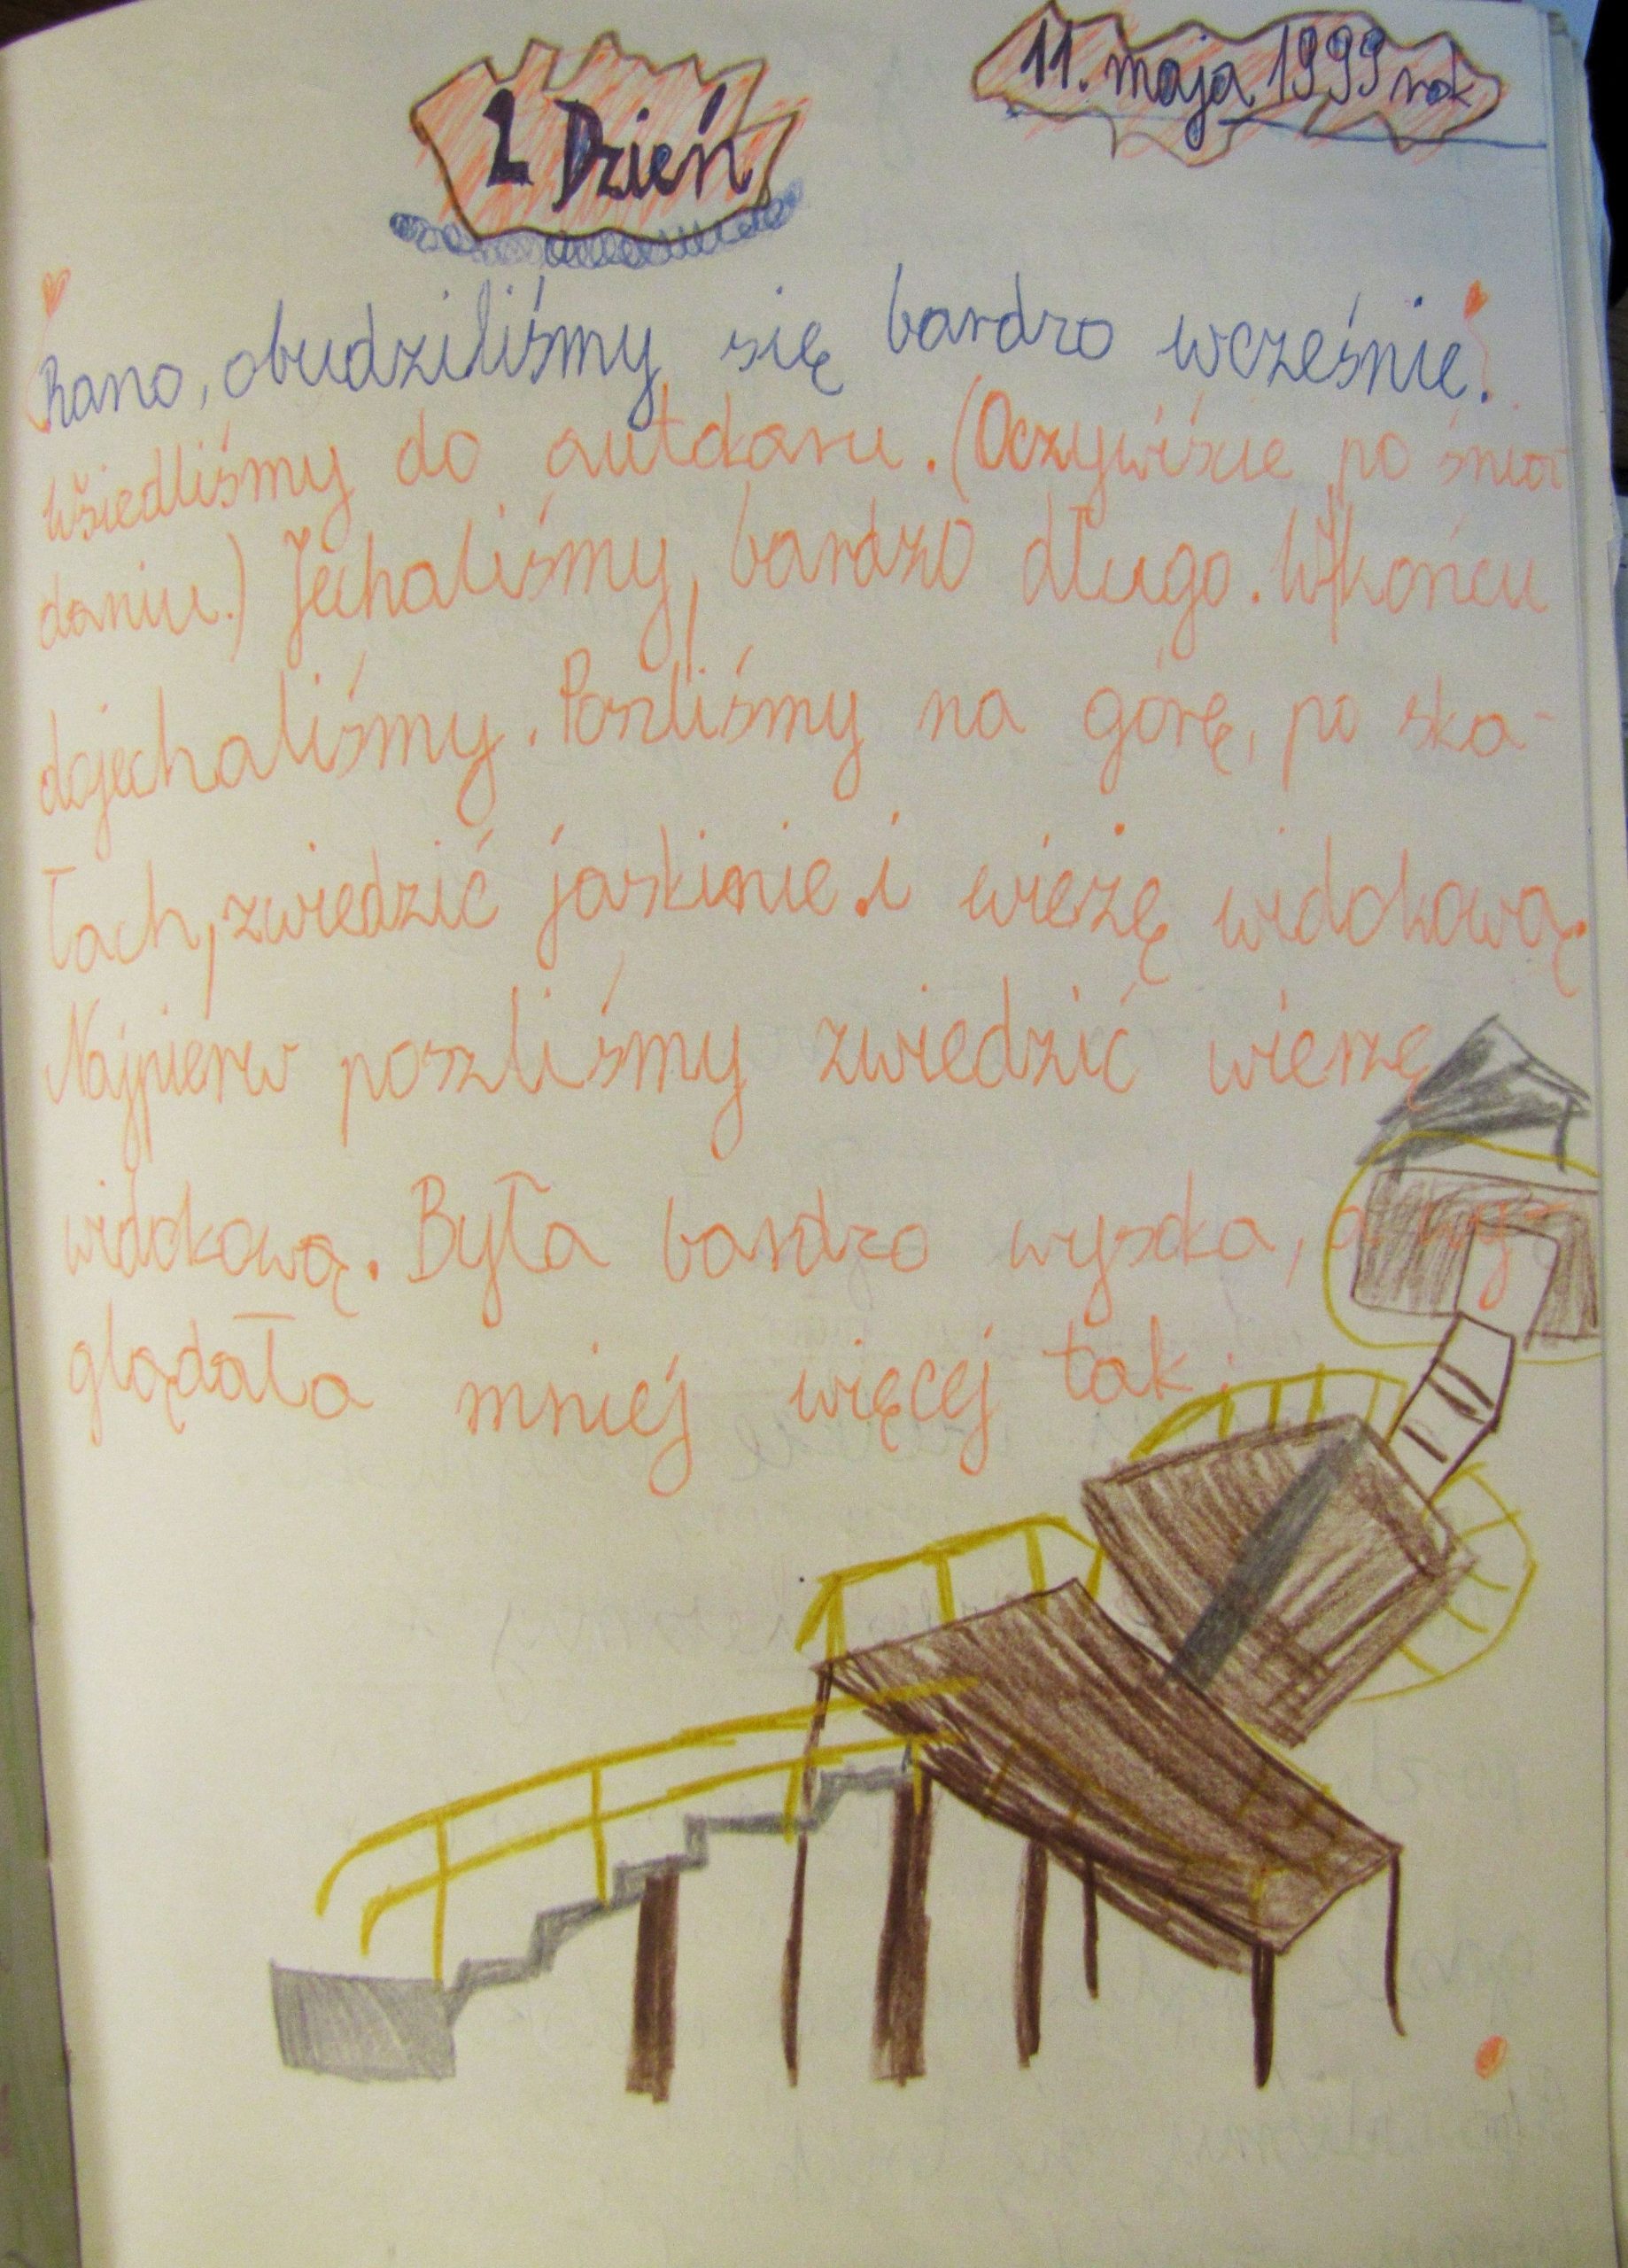 2 Dzień
11. maja 1999 rok
Rano, obudziliśmy się bardzo wcześnie.
Wsiedliśmy do autokaru. (Oczywiście po śnia
daniu.) Jechaliśmy, bardzo długo. Wkońcu
dojechaliśmy. Poszliśmy na górę, po ska-
łach, zwiedzić jaskinie i wieżę widokową.
Najpierw poszliśmy zwiedzić wierzę
widokową. Była bardzo wysoka, a wy-
glądała mniej więcej tak: